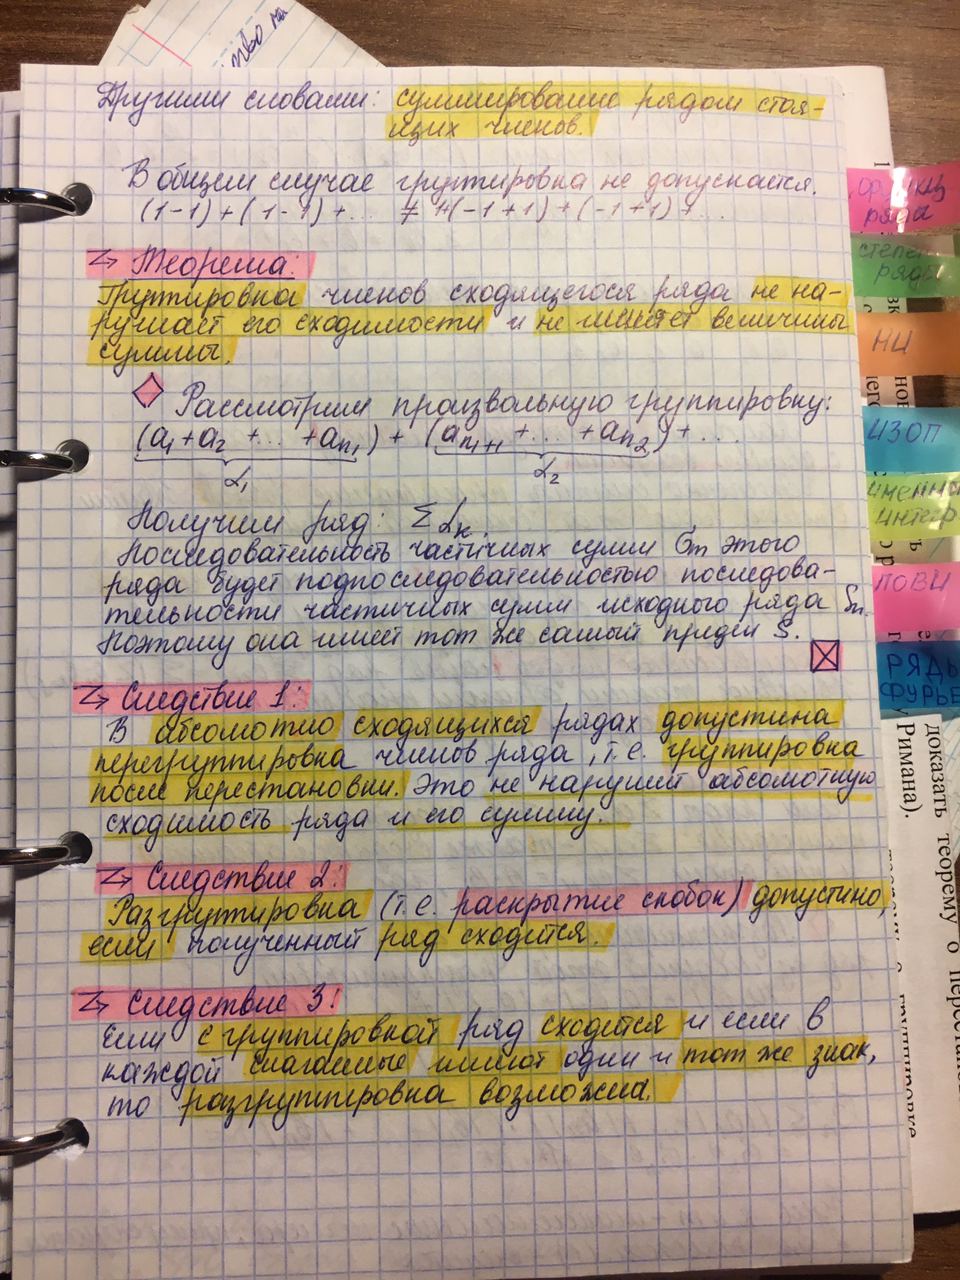 Другими словами: суммирование рядом стоя-
щих членов.
В общем случае группировка не допускается.
(1-1)+(1-1)+... ≠ 1+(-1+1)+(-1+1)+...
Теорема:
Группировка членов сходящегося ряда не на-
рушает его сходимости и не меняет величины
суммы.
Рассмотрим произвольную группировку:
(a₁+a₂ +... +aₙ₁) + (aₙ₁₊₁ +... +aₙ₂)+...
α₁ α₂
Получим ряд: Σ αₖ.
Последовательность частичных сумм σₘ этого
ряда будет подпоследовательностью последова-
тельности частичных сумм исходного ряда Sₙ.
Поэтому она имеет тот же самый предел S.
Следствие 1:
В абсолютно сходящихся рядах допустима
перегруппировка членов ряда, т.е. группировка
после перестановки. Это не нарушит абсолютную
сходимость ряда и его сумму.
Следствие 2:
Разгруппировка (т.е. раскрытие скобок) допустимо,
если полученный ряд сходится.
Следствие 3:
Если с группировкой ряд сходится и если в
каждой слагаемые имеют один и тот же знак,
то разгруппировка возможна.
ряда
степен
ряды
НИ
ИЗОП
интегр
ПОВИ
РЯДЫ
ФУРЬЕ
доказать теорему о
Римана).